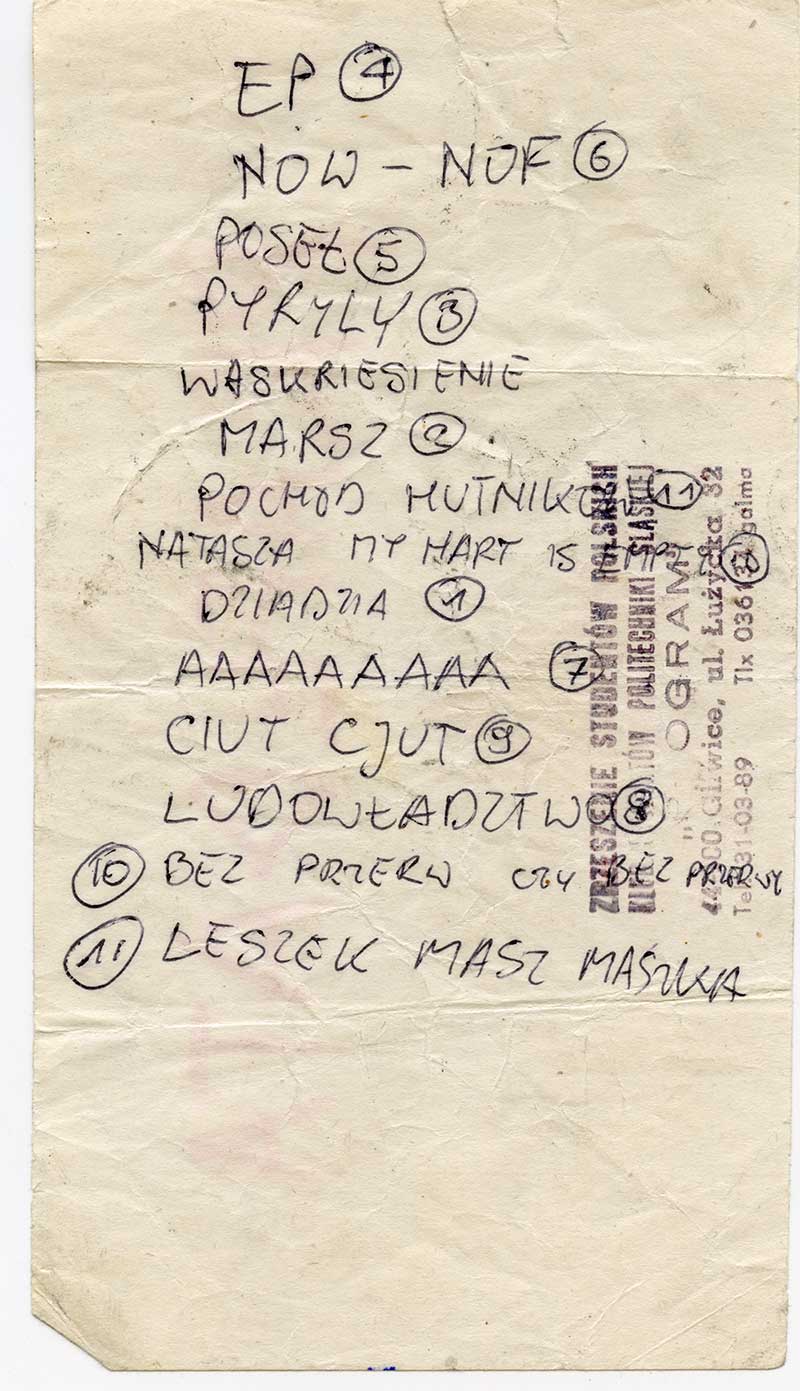 EP 4
NOW - NOF 6
POSEŁ 5
PYRYLY 3
WASKRIESIENIE
MARSZ 2
POCHÓD HUTNIKÓW 11
NATASZA MY HART IS
DZIADZIA 1
AAAAAAAAA 7
CIUT CJUT 9
LUDOWŁADZTWO 8
10 BEZ PRZERW CZY BEZ PRZERWY
11 LESZEK MASZ MASZKA
ZRZESZENIE STUDENTÓW POLSKICH
POLITECHNIKI ŚLĄSKIEJ
Gliwice, ul. Łużycka 32
Tlx 0361